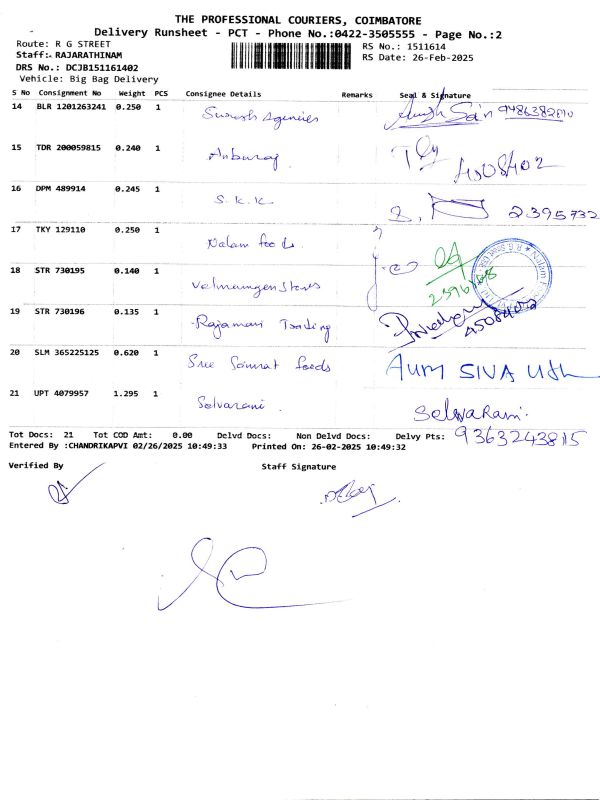 THE PROFESSIONAL COURIERS, COIMBATORE
Delivery Runsheet - PCT - Phone No.:0422-3505555 - Page No.:2
Route: R G STREET
RS No.: 1511614
Staff:- RAJARATHINAM
RS Date: 26-Feb-2025
DRS No.: DCJB151161402
Vehicle: Big Bag Delivery
S No Consignment No Weight PCS Consignee Details Remarks Seal & Signature
14 BLR 1201263241 0.250 1 Suresh Agencies
15 TDR 200059815 0.240 1 Anburaj
16 DPM 489914 0.245 1 S.K.K 2395732
17 TKY 129110 0.250 1 Nalam foods
18 STR 730195 0.140 1
19 STR 730196 0.135 1 Rajamani Trading
20 SLM 365225125 0.620 1 Sree Samrat foods AUM SIVA
21 UPT 4079957 1.295 1 Selvarani Selvarani
Tot Docs: 21 Tot COD Amt: 0.00 Delvd Docs: Non Delvd Docs: Delvy Pts: 9363243815
Entered By :CHANDRIKAPVI 02/26/2025 10:49:33 Printed On: 26-02-2025 10:49:32
Verified By Staff Signature